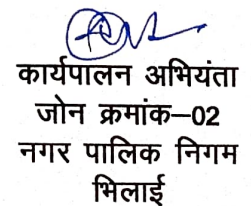 कार्यपालन अभियंता
जोन क्रमांक–02
नगर पालिक निगम
भिलाई